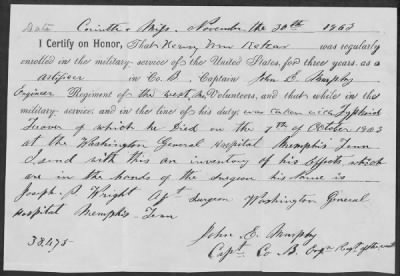 Date Corinth Miss. November the 30th 1863
I Certify on Honor, That Henry Wm was regularly
enrolled in the military service of the United States, for three years, as a
Artificer in Co. B, Captain John E. Murphy
Engineer Regiment of the West, Mo Volunteers, and that while in the
military service, and in the line of his duty, was taken with Typhoid
Feaver of which he Died on the 7th of October 1863
at the Washington General Hospital Memphis Tenn
I send with this an inventory of his Effects, which
are in the hands of the Surgeon his name is
Joseph P Wright Ast Surgeon Washington General
Hospital Memphis Tenn
John E. Murphy
38475
Capt Co B. Regt of the West